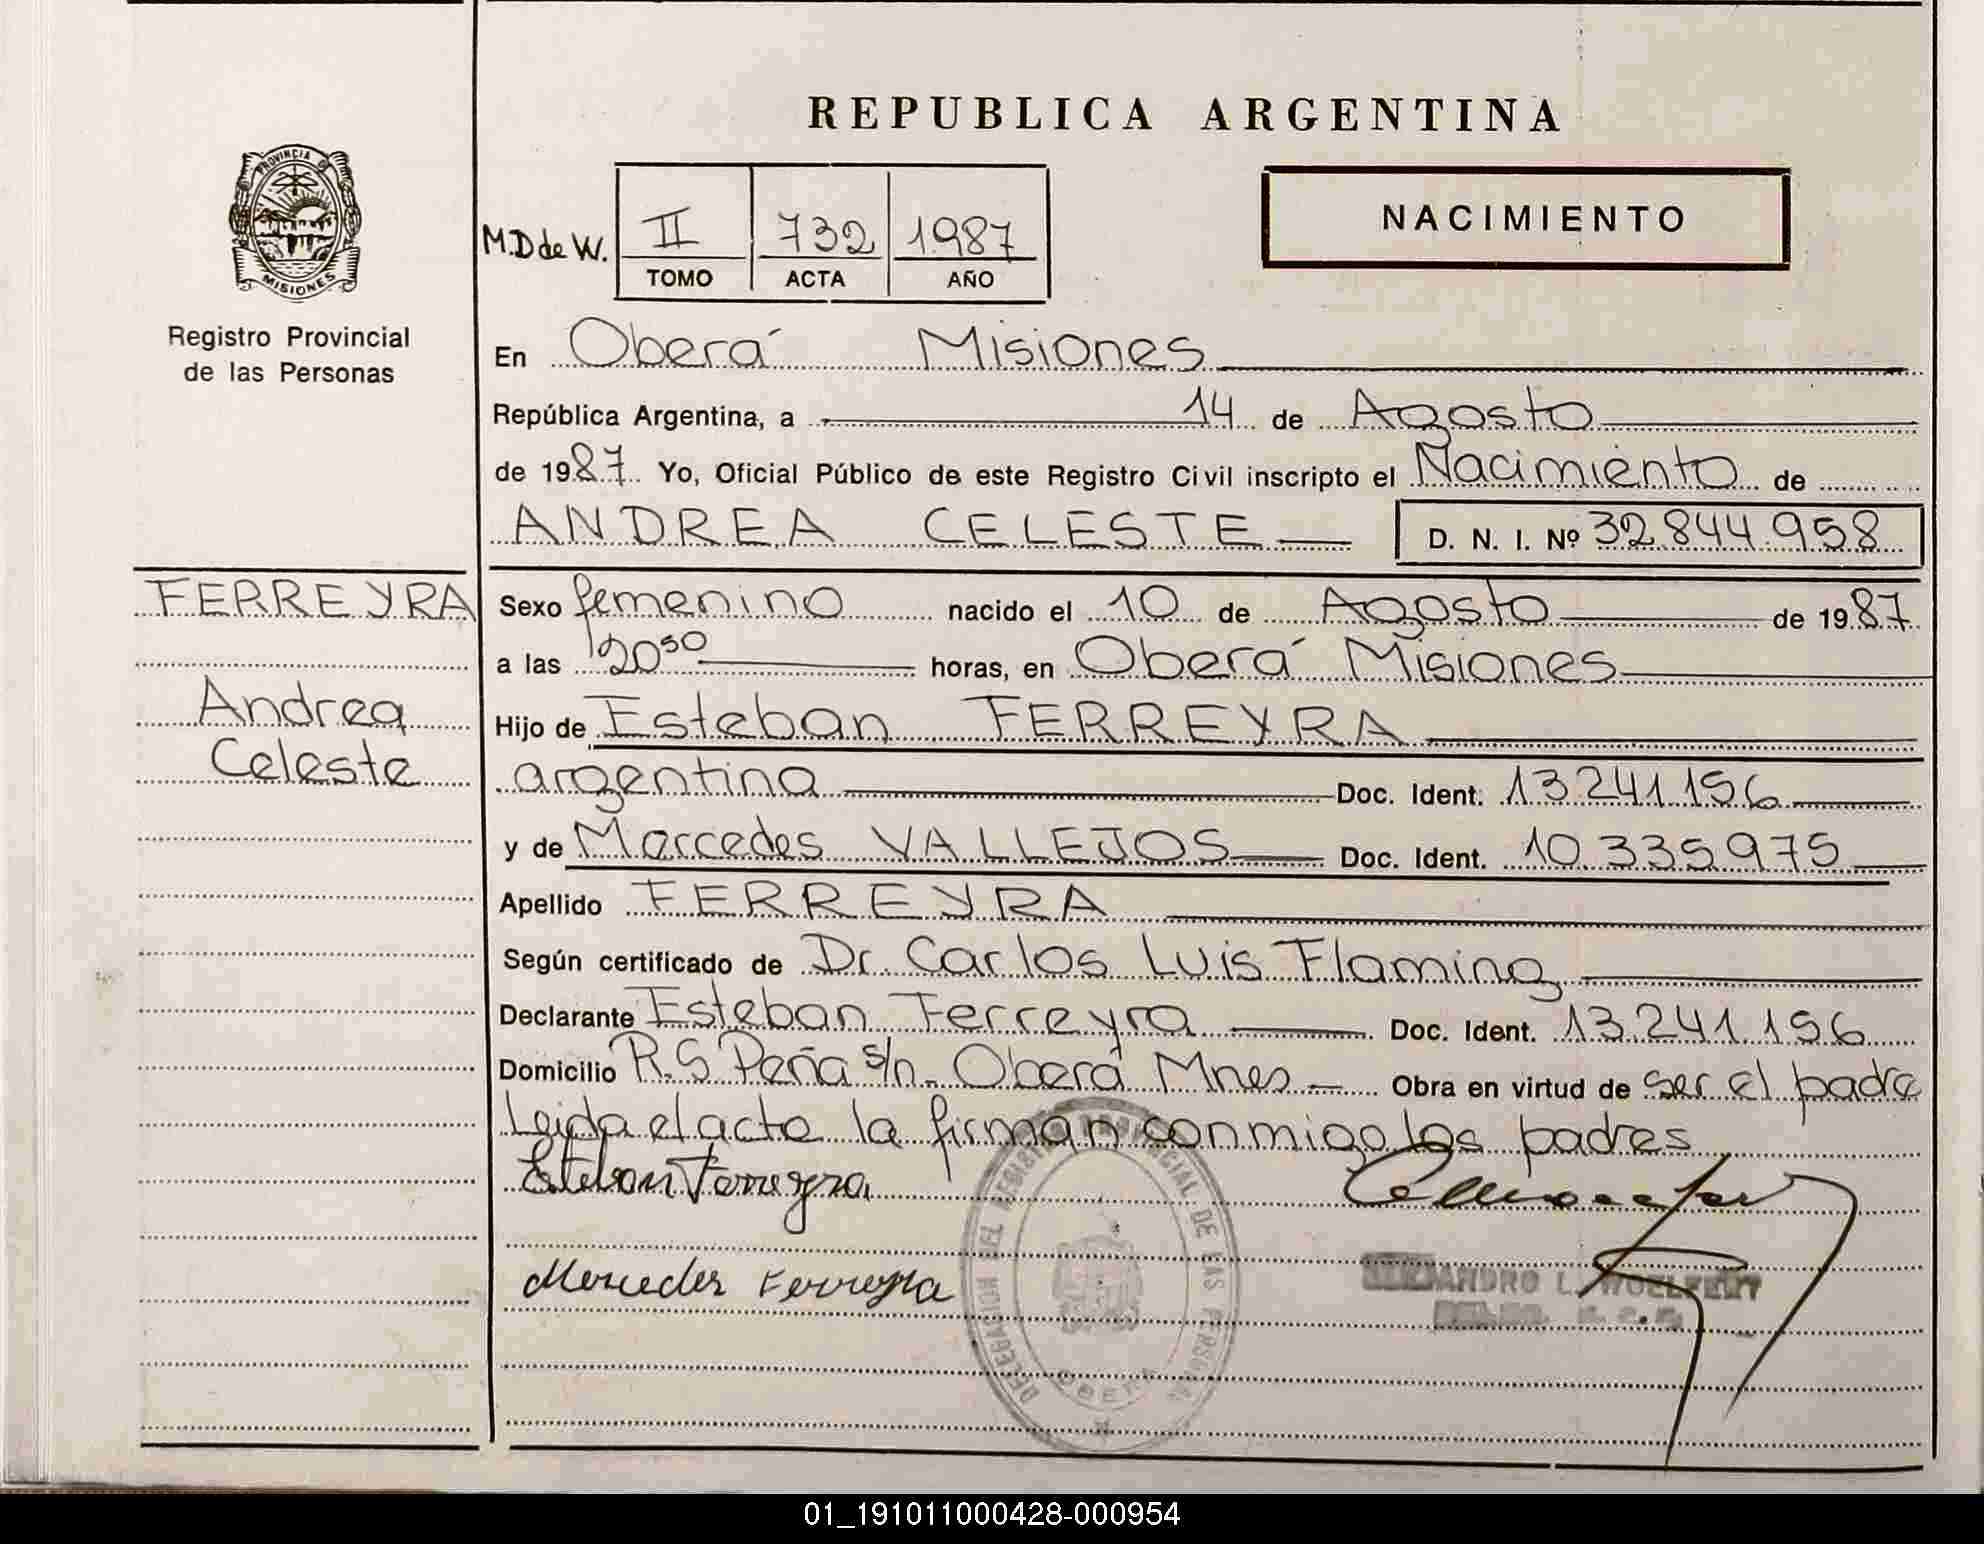 REPUBLICA ARGENTINA
PROVINCIA DE
MISIONES
Registro Provincial
de las Personas
M.D de W.
II 732 1987
TOMO ACTA AÑO
NACIMIENTO
En Oberá Misiones
República Argentina, a 14 de Agosto
de 1987. Yo, Oficial Público de este Registro Civil inscripto el Nacimiento de
ANDREA CELESTE D. N. I. Nº 32.844.958
FERREYRA
Andrea
Celeste
Sexo femenino nacido el 10 de Agosto de 1987.
a las 20⁵⁰ horas, en Oberá Misiones
Hijo de Esteban FERREYRA
argentina Doc. Ident. 13.241.156
y de Mercedes VALLEJOS Doc. Ident. 10.335.975
Apellido FERREYRA
Según certificado de Dr. Carlos Luis Flaming
Declarante Esteban Ferreyra Doc. Ident. 13.241.156
Domicilio R.S Peña s/n. Oberá Mnes Obra en virtud de ser el padre
Leida el acta la firman conmigo los padres
Esteban Ferreyra
Mercedes Ferreyra
DELEGACION EL REGISTRO PROVINCIAL DE LAS PERSONAS
OBERA
01_191011000428-000954